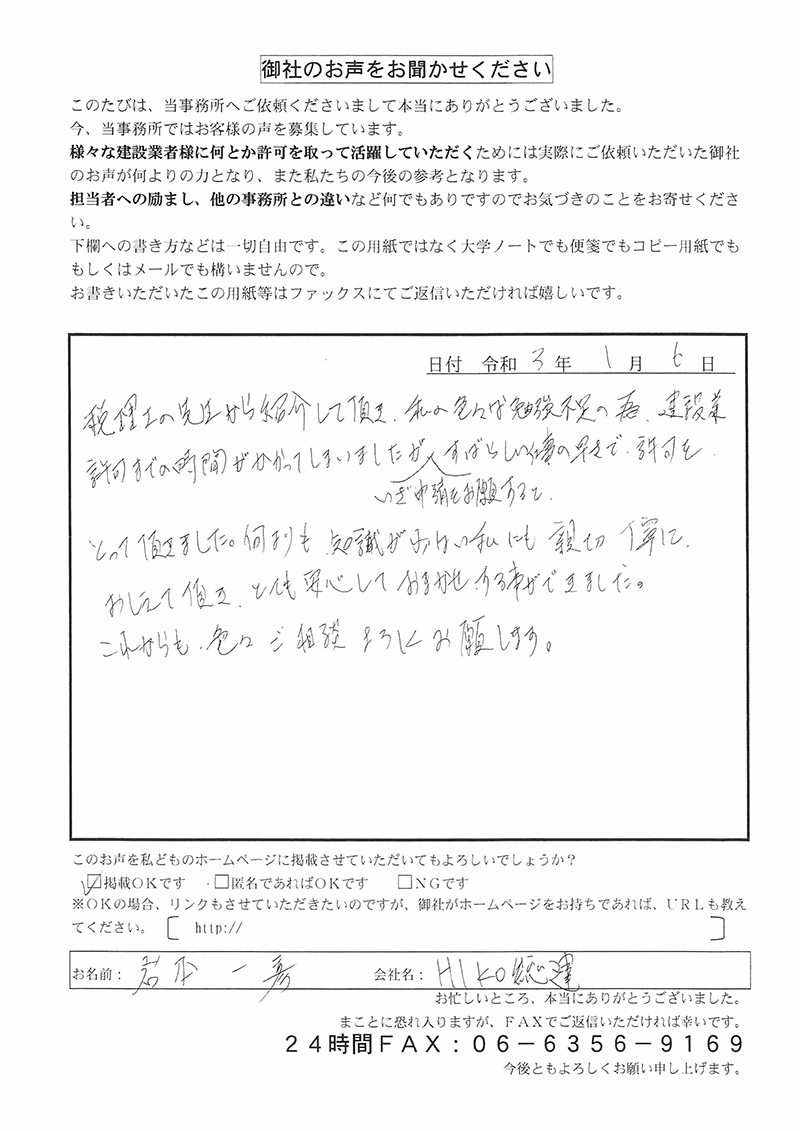 御社のお声をお聞かせください
このたびは、当事務所へご依頼くださいまして本当にありがとうございました。
今、当事務所ではお客様の声を募集しています。
様々な建設業者様に何とか許可を取って活躍していただくためには実際にご依頼いただいた御社
のお声が何よりの力となり、また私たちの今後の参考となります。
担当者への励まし、他の事務所との違いなど何でもありですのでお気づきのことをお寄せくださ
い。
下欄への書き方などは一切自由です。この用紙ではなく大学ノートでも便箋でもコピー用紙でも
もしくはメールでも構いませんので。
お書きいただいたこの用紙等はファックスにてご返信いただければ嬉しいです。
日付 令和 3 年 1 月 6 日
税理士の先生から紹介して頂き、私の色々な勉強不足の為、建設業
許可までの時間がかかってしまいましたが、すばらしい仕事の早さで、許可を
いざ申請をお願すると、
とって頂きました。何よりも知識がない私にも親切丁寧に
おしえて頂き、とても安心しておまかせする事ができました。
これからも、色々ご相談よろしくお願します。
このお声を私どものホームページに掲載させていただいてもよろしいでしょうか？
☑掲載OKです ・□匿名であればOKです □NGです
※OKの場合、リンクもさせていただきたいのですが、御社がホームページをお持ちであれば、URLも教え
てください。〔 http:// 〕
お名前：岩本 一彦 会社名：HIKO総建
お忙しいところ、本当にありがとうございました。
まことに恐れ入りますが、FAXでご返信いただければ幸いです。
24時間FAX：06－6356－9169
今後ともよろしくお願い申し上げます。